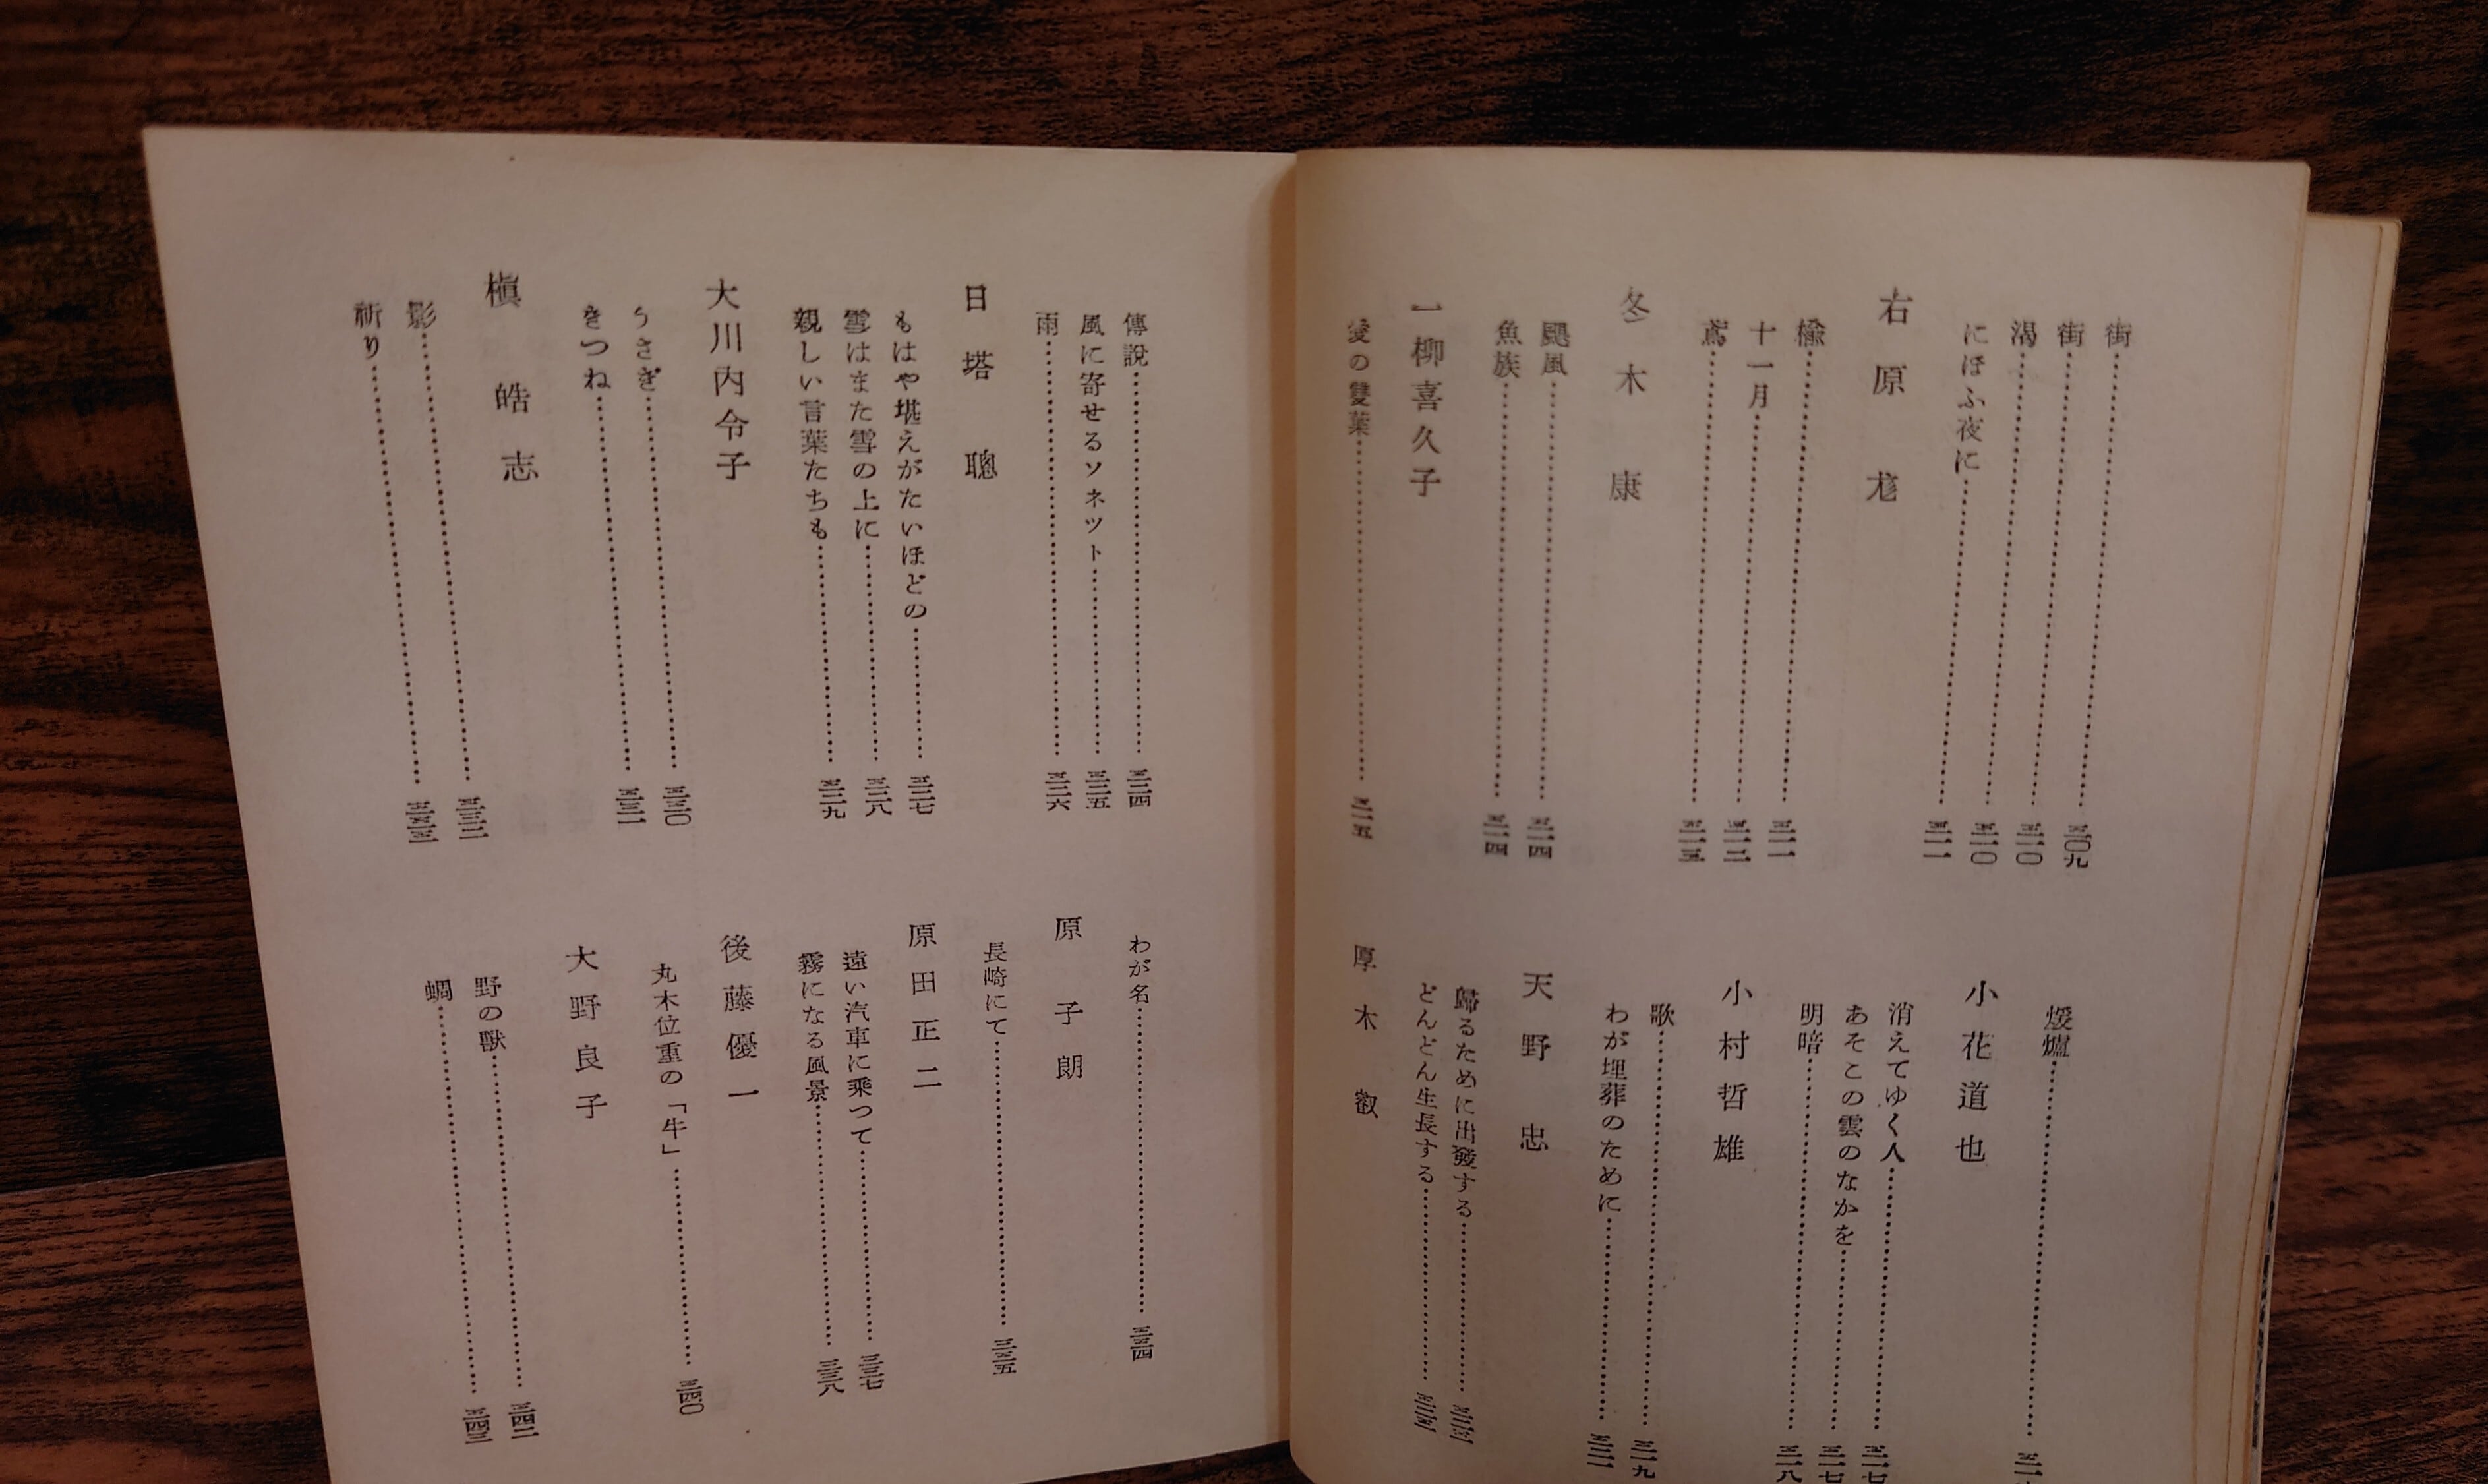 街……三〇九
街……三一〇
渇……三一〇
にほふ夜に……三一一
右原尨
楡……三一一
十一月……三一二
鳶……三一三
冬木康
颶風……三一四
魚族……三一四
一柳喜久子
愛の雙葉……三一五
煖爐……
小花道也
消えてゆく人……三一七
あそこの雲のなかを……三一七
明暗……三一八
小村哲雄
歌……三一九
わが埋葬のために……三二一
天野忠
歸るために出發する……
どんどん生長する……
厚木叡
傳說……三二四
風に寄せるソネツト……三二五
雨……三二六
日塔聰
もはや堪えがたいほどの……三二七
雪はまた雪の上に……三二八
親しい言葉たちも……三二九
大川内令子
うさぎ……三三〇
きつね……三三一
槇晧志
影……三三二
祈り……三三三
わが名……三三四
原子朗
長崎にて……三三五
原田正二
遠い汽車に乘つて……三三七
霧になる風景……三三八
後藤優一
丸木位重の「牛」……三四〇
大野良子
野の獸……三四二
蜩……三四三